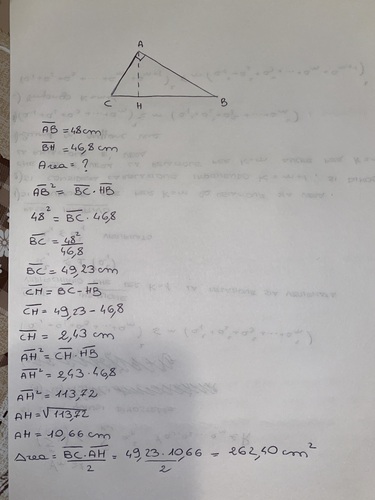 A
C H B
AB = 48 cm
BH = 46,8 cm
Area = ?
AB² = BC · HB
48² = BC · 46,8
BC = 48²/46,8
BC = 49,23 cm
CH = BC - HB
CH = 49,23 - 46,8
CH = 2,43 cm
AH² = CH · HB
AH² = 2,43 · 46,8
AH² = 113,72
AH = √113,72
AH = 10,66 cm
Area = BC · AH/2 = 49,23 · 10,66/2 = 262,40 cm²